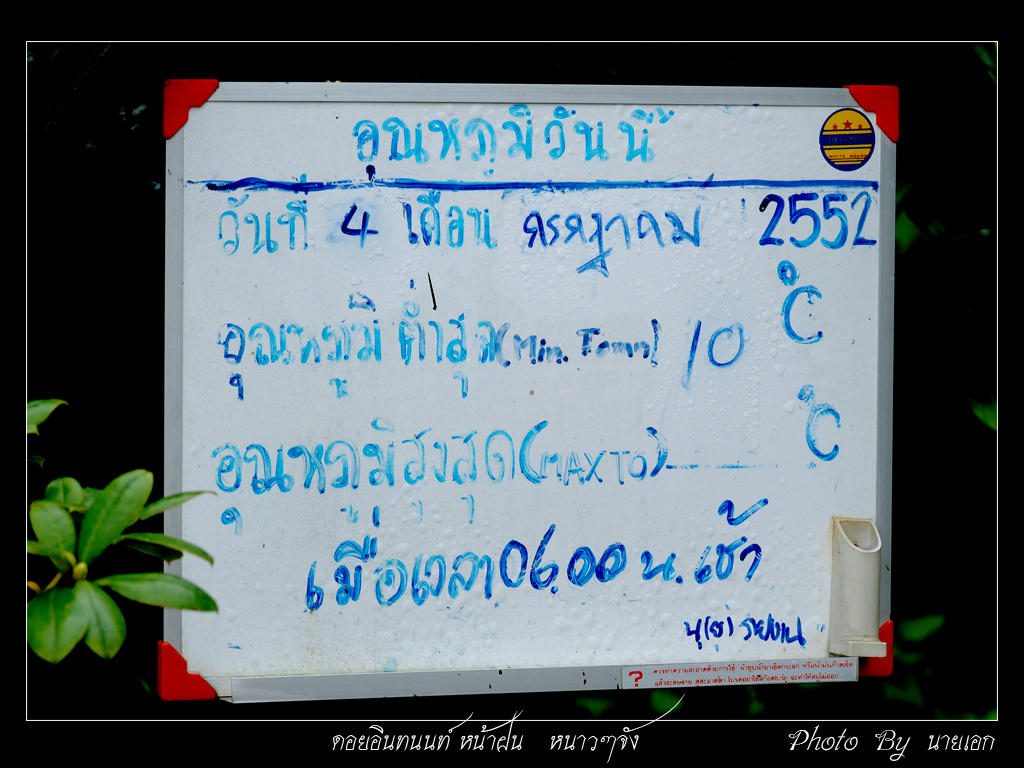 อุณหภูมิวันนี้
วันที่ 4 เดือน กรกฎาคม 2552
อุณหภูมิ ต่ำสุด (Min. Temp) 10 °C
อุณหภูมิสูงสุด (MAX TO) °C
เมื่อเวลา 06.00 น. เช้า
รายงาน
?
ดอยอินทนนท์ หน้าฝน หนาวๆจัง
Photo By นายเอก